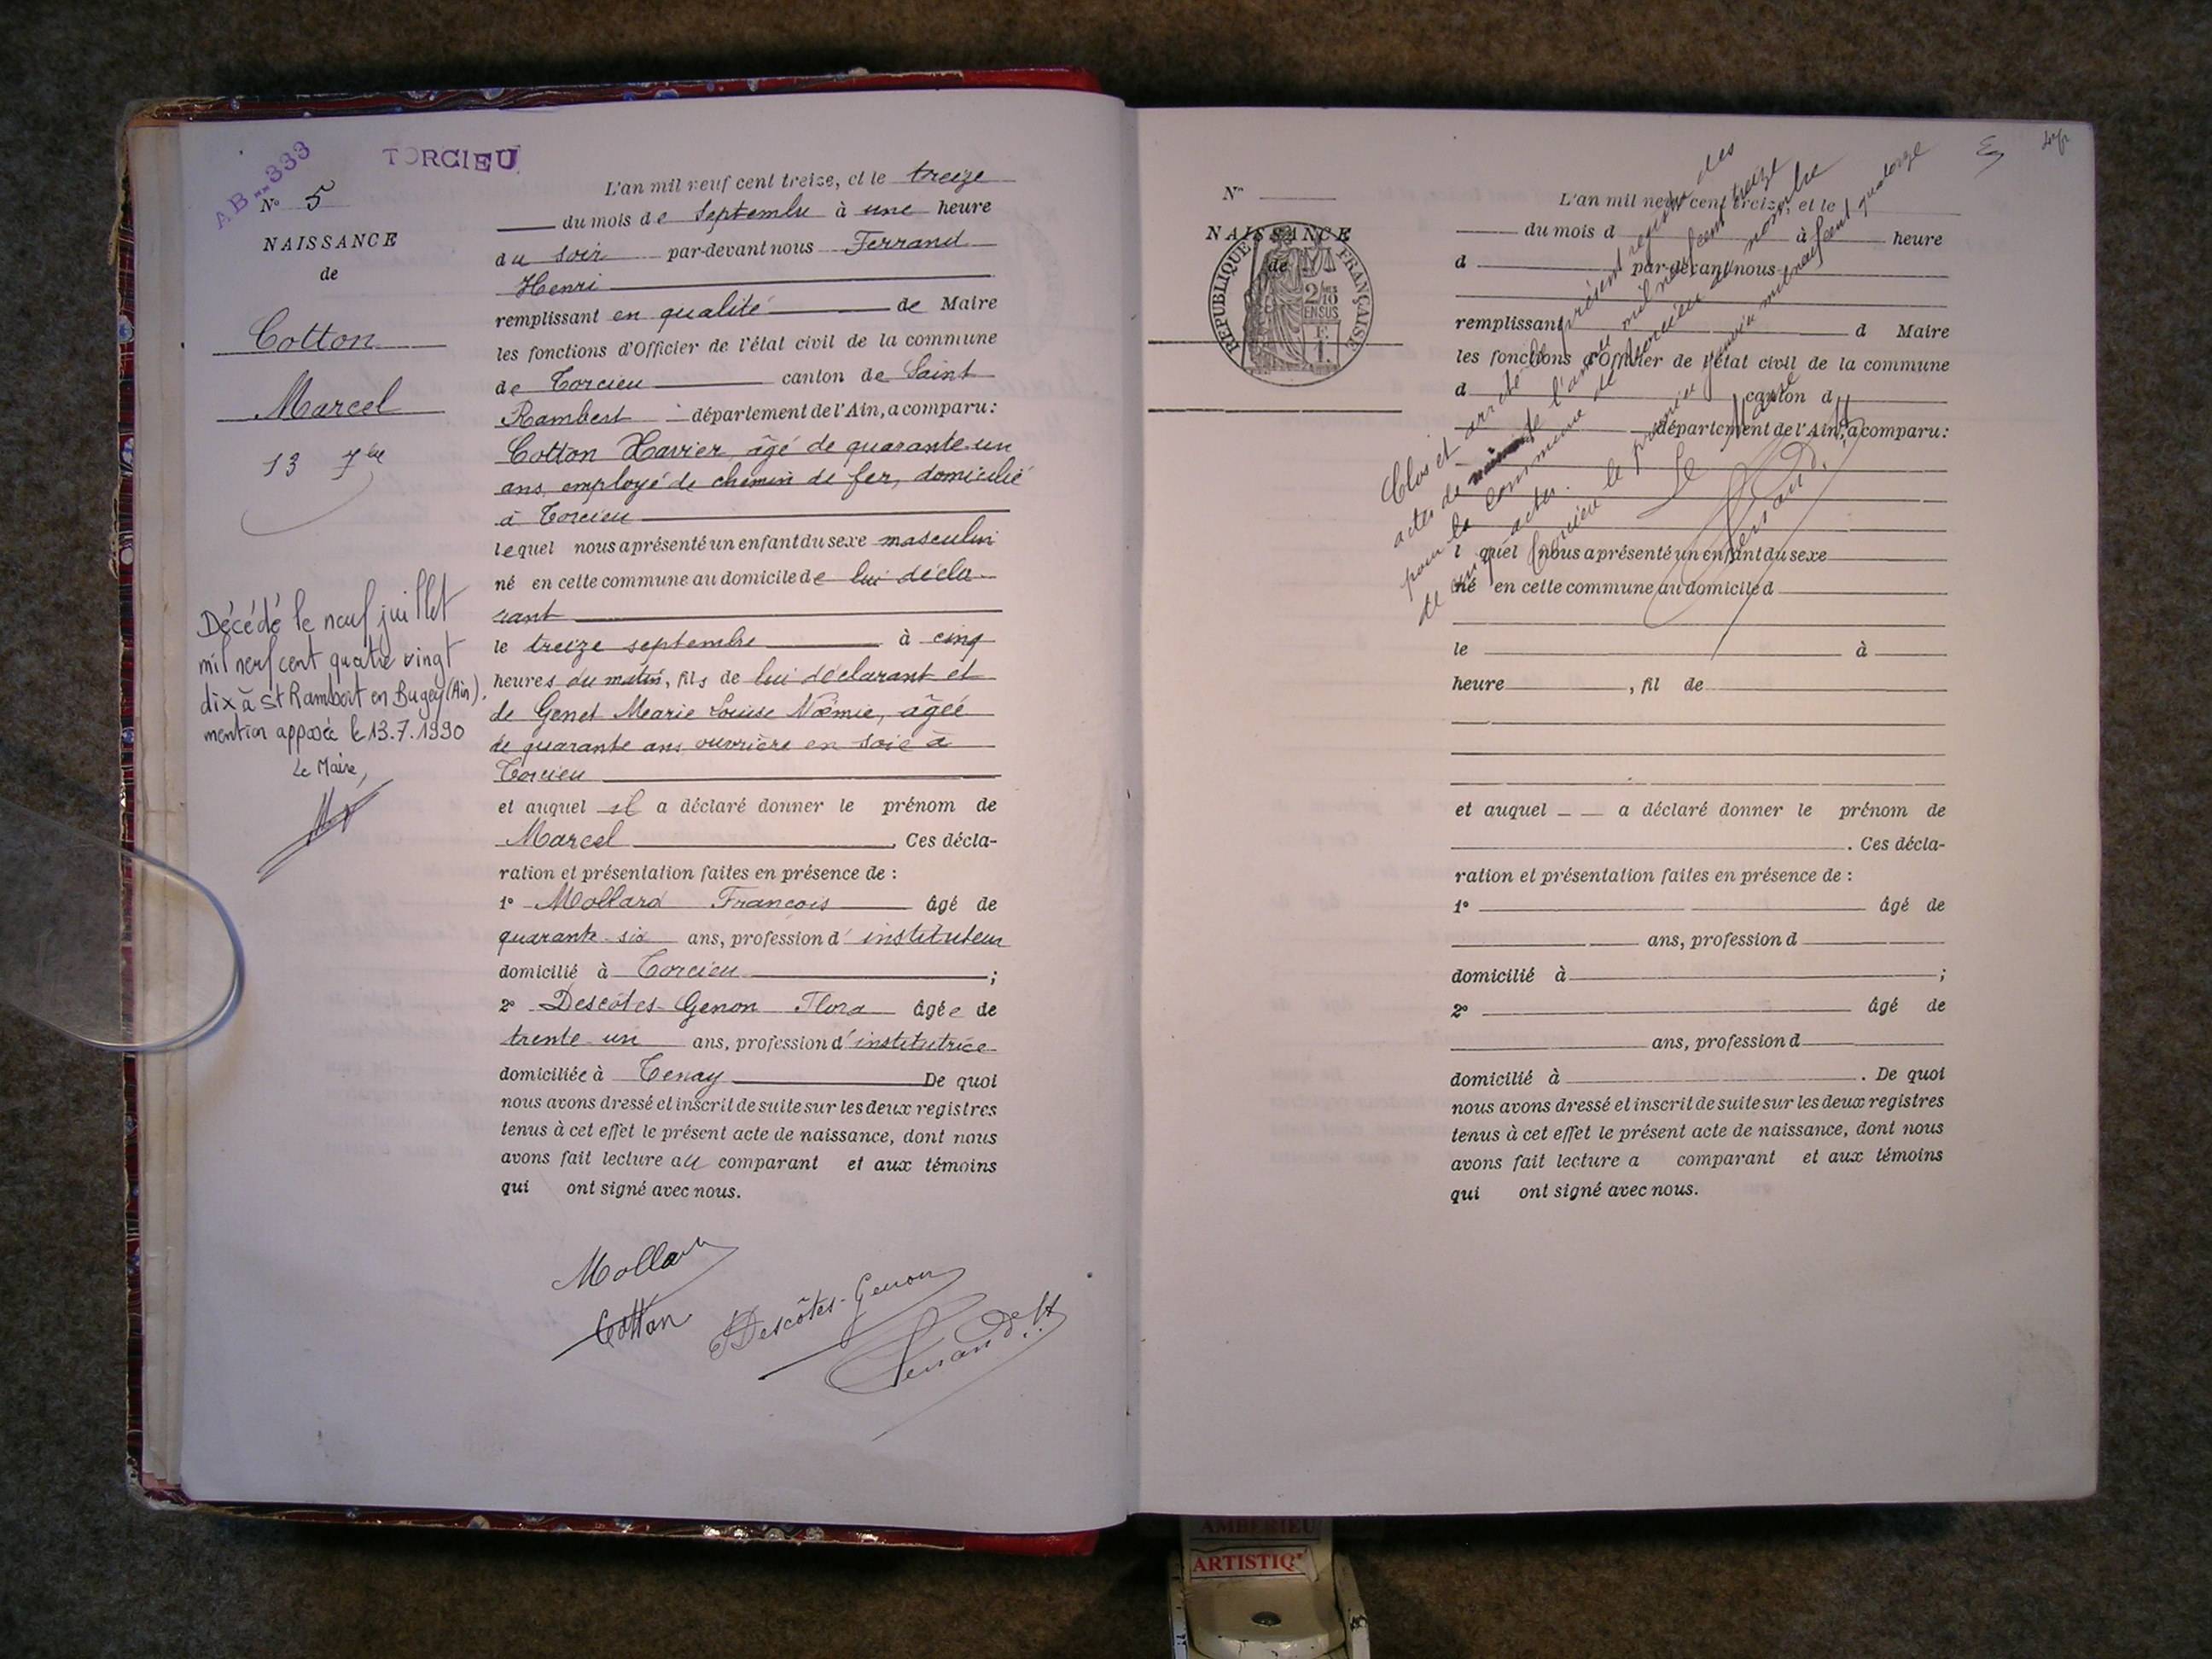 AB--333
TORCIEU
N° 5
NAISSANCE
de
Cotton
Marcel
13 7bre
Décédé le neuf juillet
mil neuf cent quatre vingt
dix à St Rambert en Bugey (Ain).
mention apposée le 13.7.1990
Le Maire,
L'an mil neuf cent treize, et le treize
du mois de Septembre à une heure
du soir par-devant nous Ferrand
Henri
remplissant en qualité de Maire
les fonctions d'Officier de l'état civil de la commune
de Torcieu canton de Saint
Rambert département de l'Ain, a comparu:
Cotton Xavier, âgé de quarante un
ans, employé de chemin de fer, domicilié
à Torcieu
lequel nous a présenté un enfant du sexe masculin
né en cette commune au domicile de lui décla-
rant
le treize septembre à cinq
heures du matin, fils de lui déclarant et
de Genet Marie Louise Noëmie, âgée
de quarante ans ouvrière en soie à
Torcieu
et auquel il a déclaré donner le prénom de
Marcel. Ces décla-
ration et présentation faites en présence de :
1° Mollard François âgé de
quarante six ans, profession d'instituteur
domicilié à Torcieu ;
2° Descôtes-Genon Flora âgée de
trente un ans, profession d'institutrice
domiciliée à Tenay De quoi
nous avons dressé et inscrit de suite sur les deux registres
tenus à cet effet le présent acte de naissance, dont nous
avons fait lecture au comparant et aux témoins
qui ont signé avec nous.
Mollard
Cotton
Descôtes-Genon
Ferrand H.
N°
NAISSANCE
de
RÉPUBLIQUE FRANÇAISE
2/10
EN SUS
F.
1.
L'an mil neuf cent treize, et le
du mois d à heure
d par-devant nous
remplissant d Maire
les fonctions d'Officier de l'état civil de la commune
d canton d
département de l'Ain, a comparu:
l quel nous a présenté un enfant du sexe
né en cette commune au domicile d
le à
heure , fil de
et auquel a déclaré donner le prénom de
. Ces décla-
ration et présentation faites en présence de :
1° âgé de
ans, profession d
domicilié à ;
2° âgé de
ans, profession d
domicilié à . De quoi
nous avons dressé et inscrit de suite sur les deux registres
tenus à cet effet le présent acte de naissance, dont nous
avons fait lecture a comparant et aux témoins
qui ont signé avec nous.
Clos et arrêté le présent registre des
actes de l'année mil neuf cent treize
pour la commune de Torcieu au nombre
de cinq actes.
Torcieu le premier janvier mil neuf cent quatorze
Le Maire
Ferrand H.
AMBERIEU
ARTISTIQ'